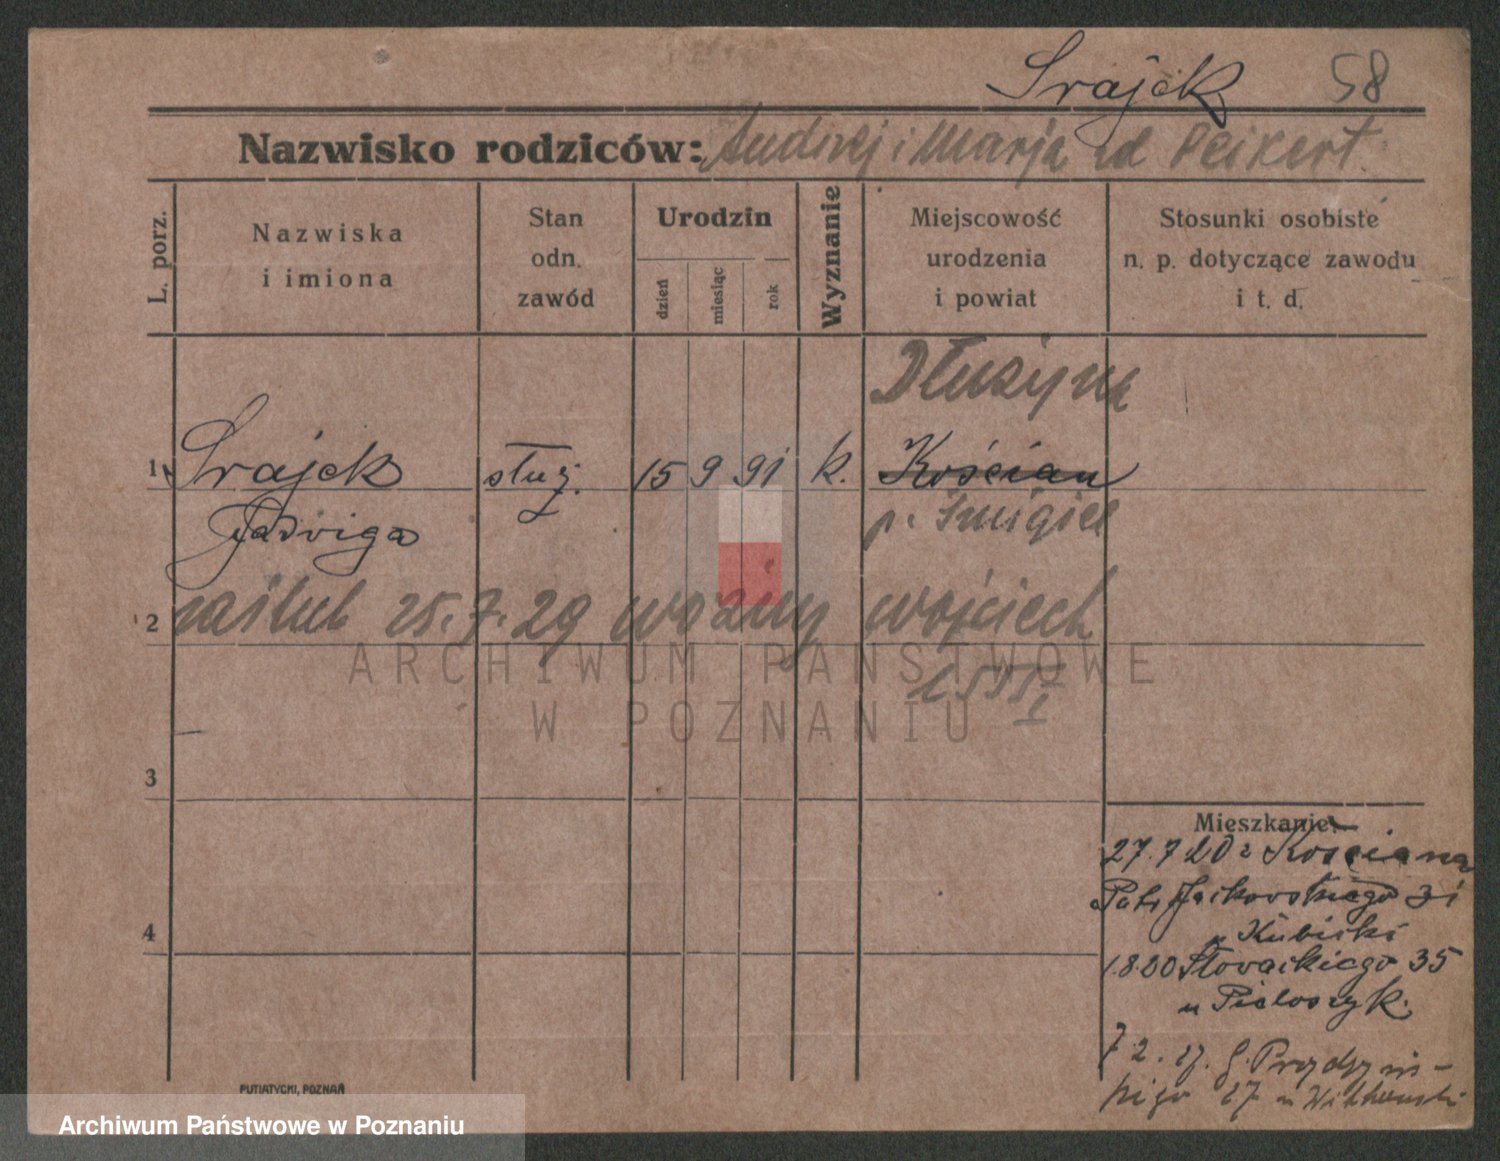 Srajek 58
Nazwisko rodziców: Andrzej i Marja zd Peikert
L. porz.
Nazwiska
i imiona
Stan
odn.
zawód
Urodzin
dzień
miesiąc
rok
Wyznanie
Miejscowość
urodzenia
i powiat
Stosunki osobiste
n. p. dotyczące zawodu
i t. d.
Dłużyna
1 Srajek służ. 15 9 91 k. Kościan
Jadwiga p. Śmigiel
2 zaślub 25.7.29 Woźny Wojciech
3
4
Mieszkanie:
27.7 20 z Kościana
Jackowskiego 31
u Kubicki
1.8.20 Słowackiego 35
u
7 2. 27. G. Prądzyń-
skiego 27 u Witkowski
PUTIATYCKI, POZNAŃ
ARCHIWUM PAŃSTWOWE
W POZNANIU
Archiwum Państwowe w Poznaniu